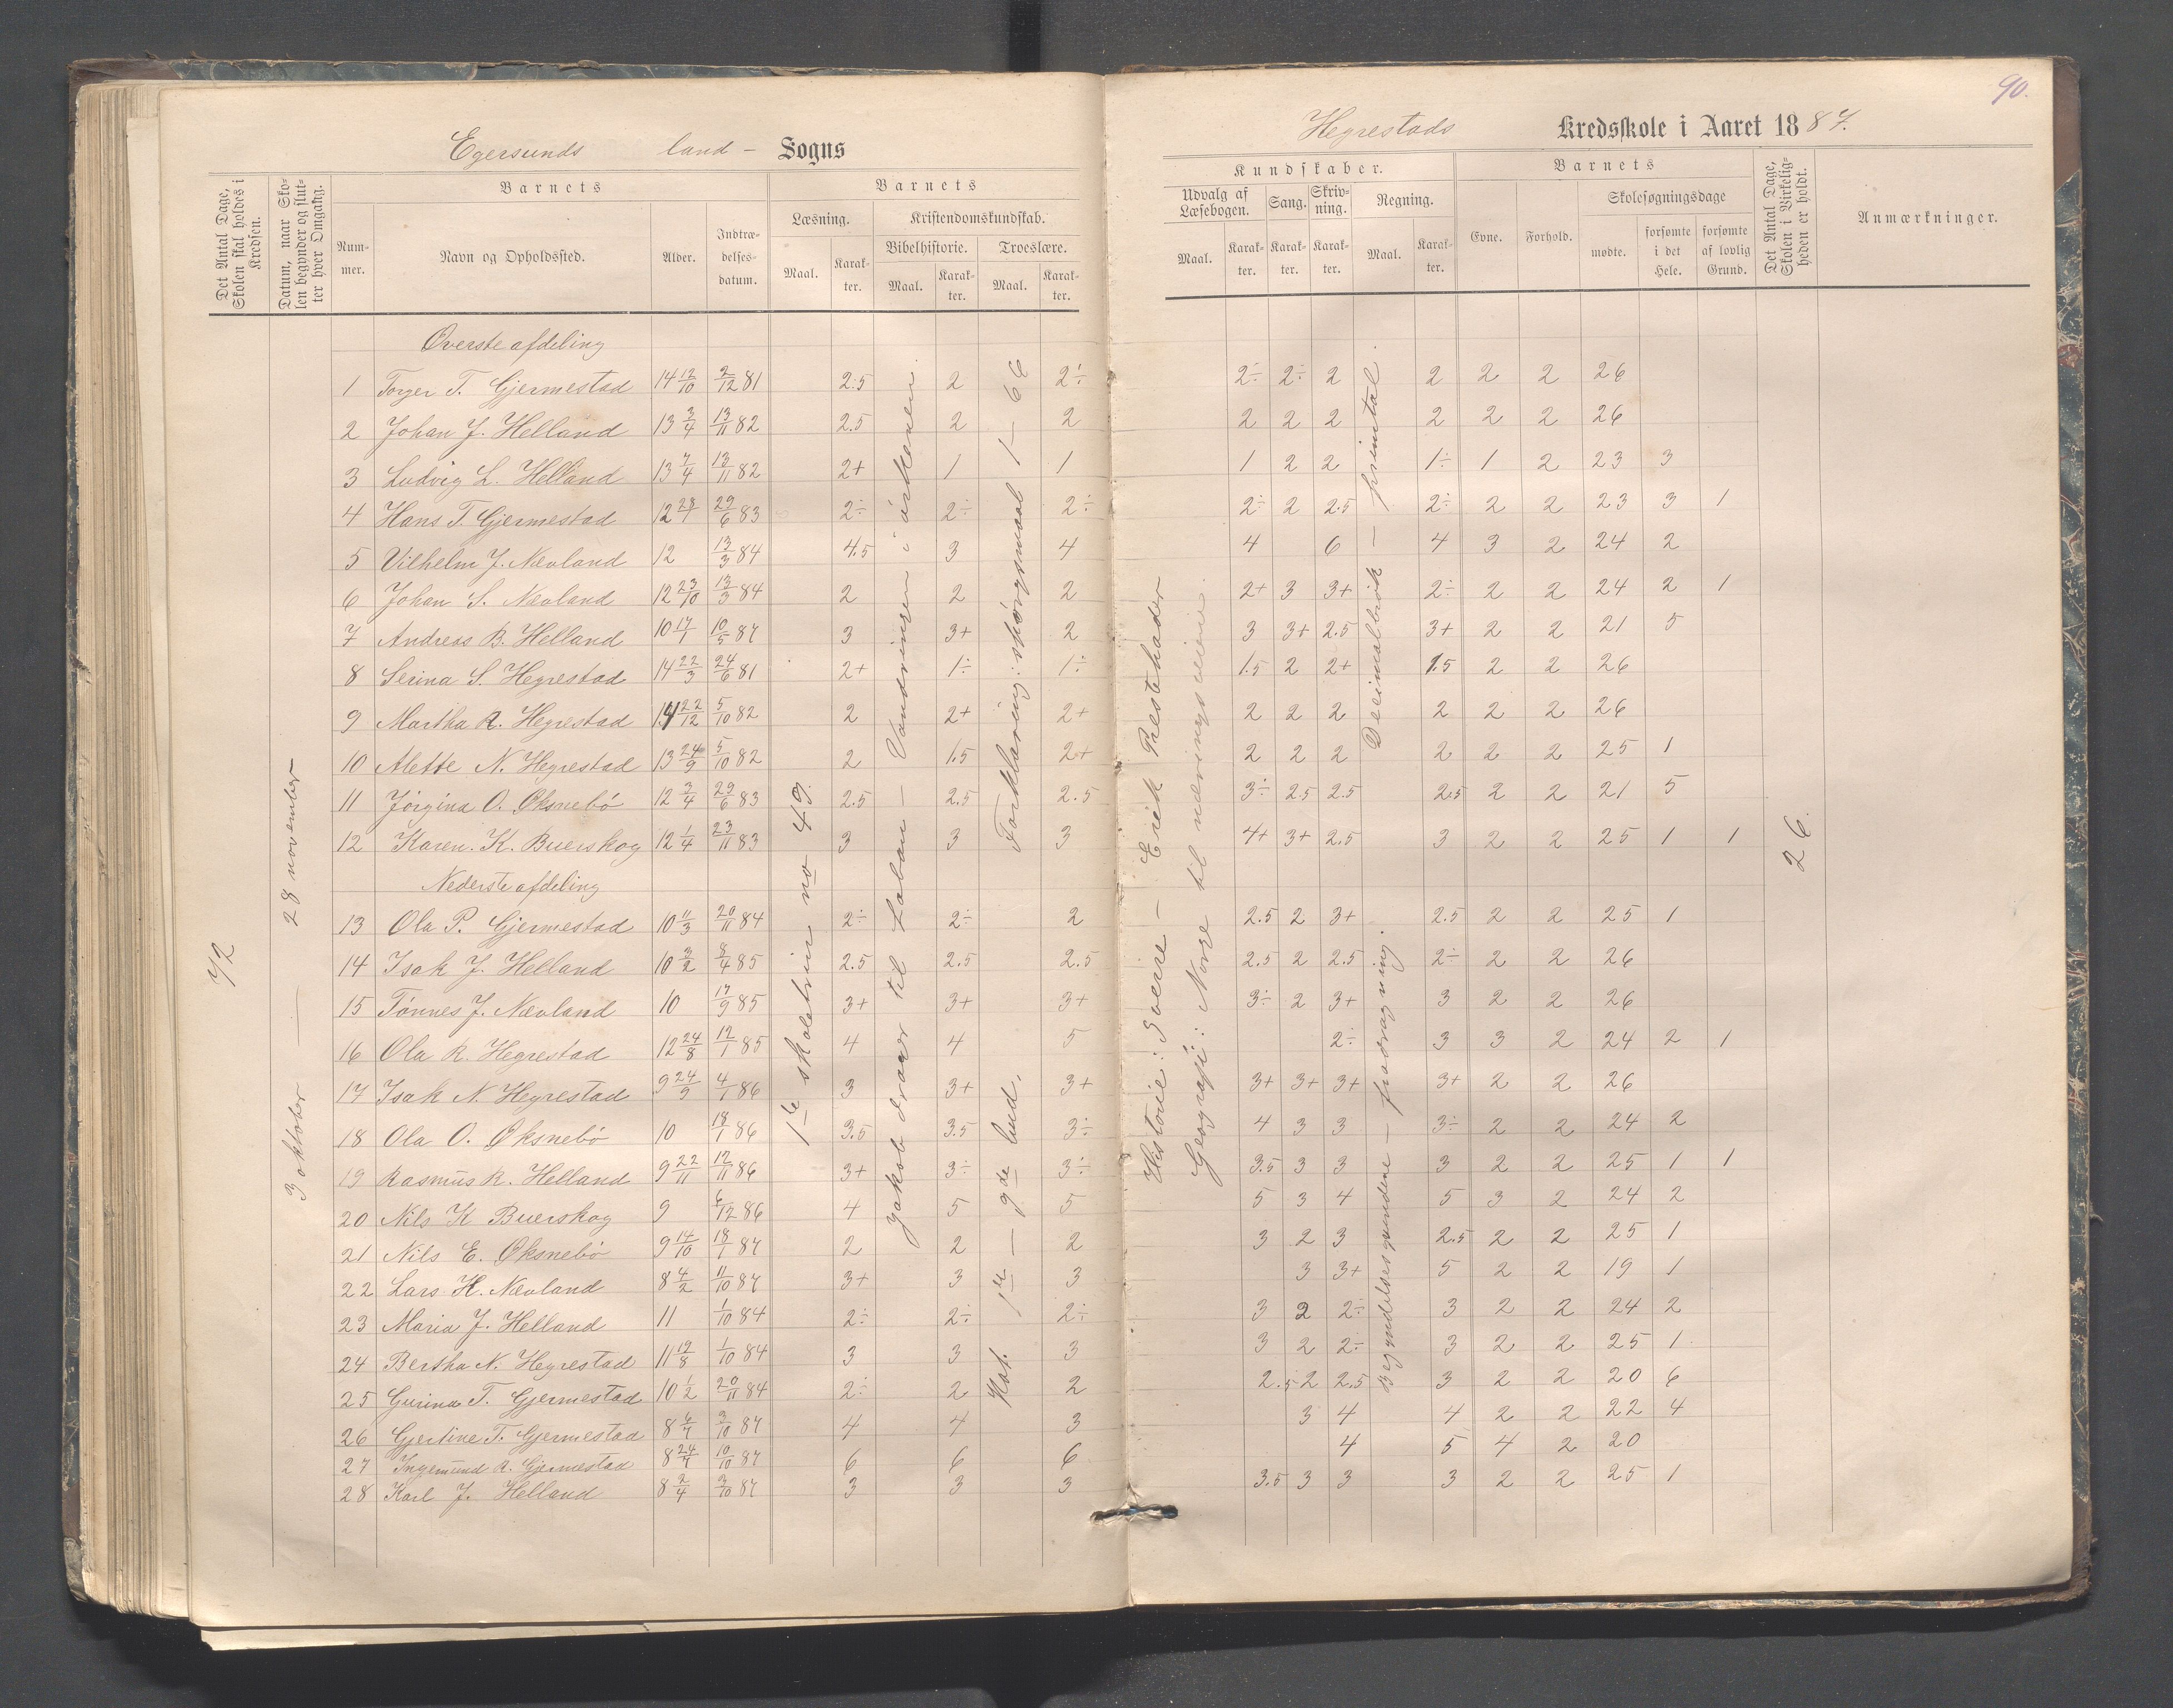 90.
Egersunds land - Sogns
Hegrestads Kredsskole i Aaret 1887.
Det Antal Dage, Skolen skal holdes i Kredsen.
Datum, naar Skolen begynder og slutter hver Omgang.
Barnets
Nummer.
Navn og Opholdssted.
Alder.
Indtrædelsesdatum.
Barnets
Læsning.
Maal.
Karakter.
Kristendomskundskab.
Bibelhistorie.
Maal.
Karakter.
Troeslære.
Maal.
Karakter.
Kundskaber.
Udvalg af Læsebogen.
Maal.
Karakter.
Sang.
Karakter.
Skrivning.
Karakter.
Regning.
Maal.
Karakter.
Barnets
Evne.
Forhold.
Skolesøgningsdage
mødte.
forsømte i det Hele.
forsømte af lovlig Grund.
Det Antal Dage, Skolen i Virkeligheden er holdt.
Anmærkninger.
72
3 oktober — 28 november
1te skoletrin no 49.
Jakob drar til Laban — Vandringen i ørkenen.
Forklaring: spørgsmaal 1 — 66
Kat. 1te — 9de bud.
Historie: Sverre — Erik Prestehader
Geografi: Norge til næringsveiene.
Decimalbrøk — primtal.
Begyndelsesgrundene — fradragning.
26.
Øverste afdeling
1 Torger T. Gjermestad 14 12/10 2/12 81 2.5 2 2÷ 2÷ 2÷ 2 2 2 2 26
2 Johan J. Helland 13 3/4 13/11 82 2.5 2 2 2 2 2 2 2 2 26
3 Ludvig L. Helland 13 7/4 13/11 82 2+ 1 1 1 2 2 1÷ 1 2 23 3
4 Hans T. Gjermestad 12 28/1 29/6 83 2÷ 2÷ 2÷ 2÷ 2 2.5 2÷ 2 2 23 3 1
5 Vilhelm J. Nævland 12 13/3 84 4.5 3 4 4 6 4 3 2 24 2
6 Johan S. Nævland 12 23/10 13/3 84 2 2 2 2+ 3 3+ 2÷ 2 2 24 2 1
7 Andreas B. Helland 10 17/1 10/5 87 3 3+ 2 3 3+ 2.5 3+ 2 2 21 5
8 Serina S. Hegrestad 14 22/3 24/6 81 2+ 1÷ 1÷ 1.5 2 2+ 1.5 2 2 26
9 Martha R. Hegrestad 14 22/12 5/10 82 2 2+ 2+ 2 2 2 2 2 2 26
10 Alette N. Hegrestad 13 24/9 5/10 82 2 1.5 2+ 2 2 2 2 2 2 25 1
11 Jørgina O. Øksnebø 12 3/4 29/6 83 2.5 2.5 2.5 3÷ 2.5 2.5 2.5 2 2 21 5
12 Karen. K. Buerskog 12 1/4 23/11 83 3 3 3 4+ 3+ 2.5 3 2 2 25 1 1
Nederste afdeling
13 Ola P. Gjermestad 10 11/3 20/11 84 2÷ 2÷ 2 2.5 2 3+ 2.5 2 2 25 1
14 Isak J. Helland 10 3/2 8/4 85 2.5 2.5 2.5 2.5 2 2.5 2÷ 2 2 26
15 Tønnes J. Nævland 10 17/9 85 3+ 3+ 3+ 3÷ 2 3+ 3 2 2 26
16 Ola R. Hegrestad 12 24/8 12/1 85 4 4 5 2÷ 3 3 2 24 2 1
17 Isak N. Hegrestad 9 24/9 4/1 86 3 3+ 3+ 3+ 3+ 3+ 3+ 2 2 26
18 Ola O. Øksnebø 10 18/1 86 3.5 3.5 3÷ 4 3 3 3÷ 2 2 24 2
19 Rasmus R. Helland 9 22/11 12/11 86 3+ 3÷ 3÷ 3.5 3 3 3 2 2 25 1 1
20 Nils K Buerskog 9 6/12 86 4 5 5 5 3 4 5 3 2 24 2
21 Nils E. Øksnebø 9 14/10 18/1 87 2 2 2 3 2 3 2.5 2 2 25 1
22 Lars H. Nævland 8 4/2 11/10 87 3+ 3 3 3 3+ 5 2 2 19 1
23 Maria J. Helland 11 1/10 84 2÷ 2÷ 2÷ 3 2 2÷ 3 2 2 24 2
24 Bertha N. Hegrestad 11 19/8 1/10 84 3 3 3 3 2 2÷ 3 2 2 25 1
25 Gurina T. Gjermestad 10 1/2 20/11 84 2÷ 2 2 2.5 2 2.5 3 2 2 20 6
26 Gjertine T. Gjermestad 8 4/7 3/10 87 4 4 3 3 4 4 2 2 22 4
27 Ingemund R. Gjermestad 8 24/7 10/10 87 6 6 6 4 5 4 2 20
28 Karl J. Helland 8 2/4 3/10 87 3 3 3 3.5 3 3 3 2 2 25 1